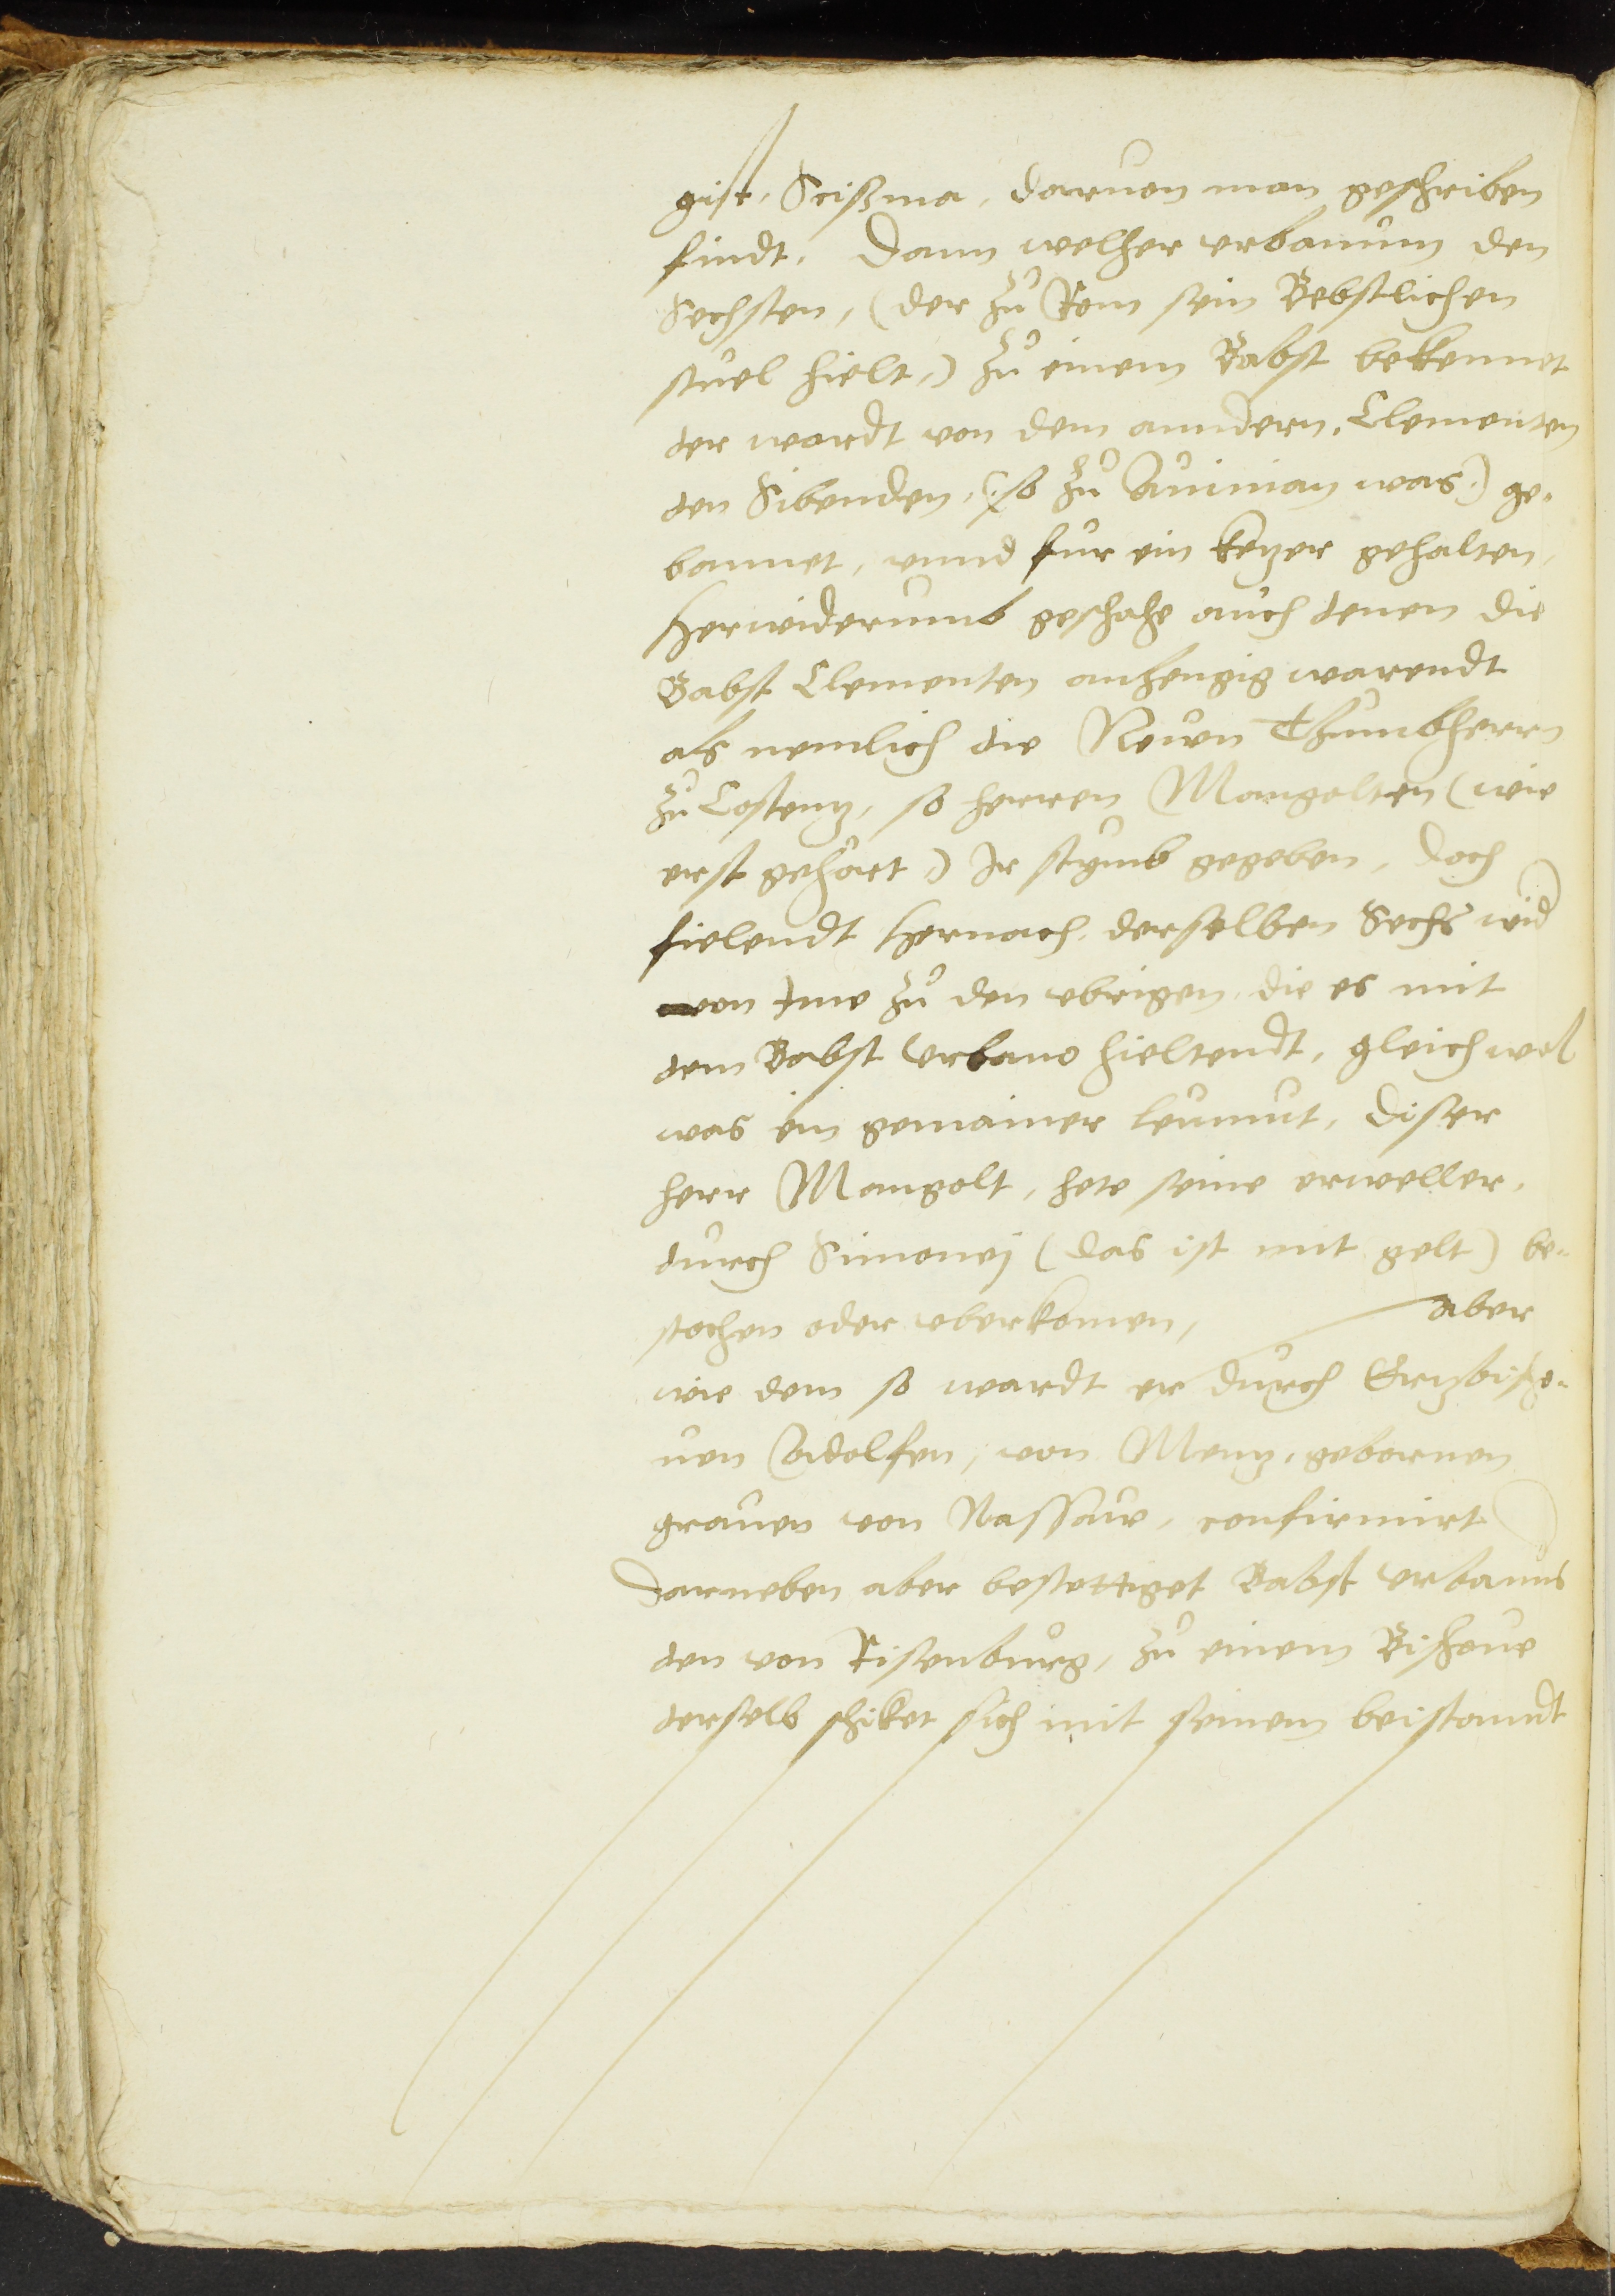 gist, Scißma, daruon man geschriben
findt, Dann welher vrbanum den
Sechsten, (der zů Rom sein Bebstlichen
stůel hielt,) zů einem Babst bekennet
der wardt von dem anndern, Clementen
den Sibenden, (so zů Auinian was,) ge-
bannet, vnnd fur ein ketzer gehalten,
Herwiderumb geschahe auch denen die
Babst Clementen anhengig warendt
als nemlich die Neun Thumbherrn
zů Costentz, so herren Mangolten (wie
erst gehört,) Ir stymb gegeben, doch
fielendt hernach, derselben Sechs wid
von Ime zů den vbrigen, die es mit
dem Babst Vrbano hieltendt, gleichwol
was ein gemainer leumut, diser
herr Mangolt, hete seine erweller,
durch Simonej (das ist mit gelt) be-
stochen oder vberkomen, aber
wie dem so wardt er durch Ertzbischo-
uen Adolfen, von Mentz, gebornen
grauen von Nassaw, confirmirt
Darneben aber bestettiget Babst vrbanus
den von Risenburg, zů einem Bischoue
derselb schiket sich mit seinem beistanndt